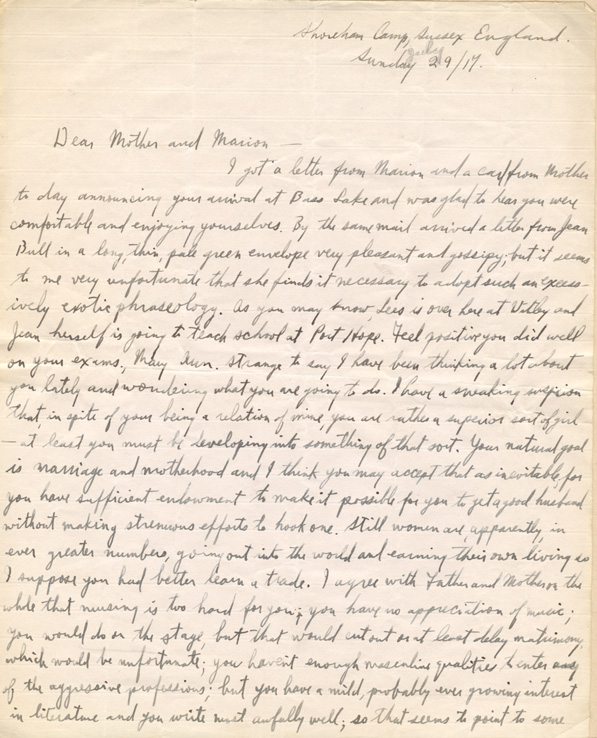 Shoreham Camp, Sussex England.
Sunday July 29/17.
Dear Mother and Marion —
I got a letter from Marion and a card from Mother
to day announcing your arrival at Bass Lake and was glad to hear you were
comfortable and enjoying yourselves. By the same mail arrived a letter from Jean
Bull in a long, thin, pale green envelope very pleasant and gossipy; but it seems
to me very unfortunate that she finds it necessary to adopt such an excess-
ively exotic phraseology. As you may know, is over here at Witley and
Jean herself is going to teach school at Port Hope. Feel positive you did well
on your exams, Mary Ann. Strange to say I have been thinking a lot about
you lately and wondering what you are going to do. I have a sneaking suspicion
that, in spite of your being a relation of mine, you are rather a superior sort of girl
— at least you must be developing into something of that sort. Your natural goal
is marriage and motherhood and I think you may accept that as inevitable, for
you have sufficient endowment to make it possible for you to get a good husband
without making strenuous efforts to hook one. Still women are, apparently, in
ever greater numbers, going out into the world and earning their own living so
I suppose you had better learn a trade. I agree with Father and Mother on the
whole that nursing is too hard for you; you have no appreciation of music;
you would do on the stage but that would cut out or at least delay matrimony,
which would be unfortunate; you haven't enough masculine qualities to enter any
of the aggressive professions; but you have a mild, probably ever growing interest
in literature and you write most awfully well; so that seems to point to some